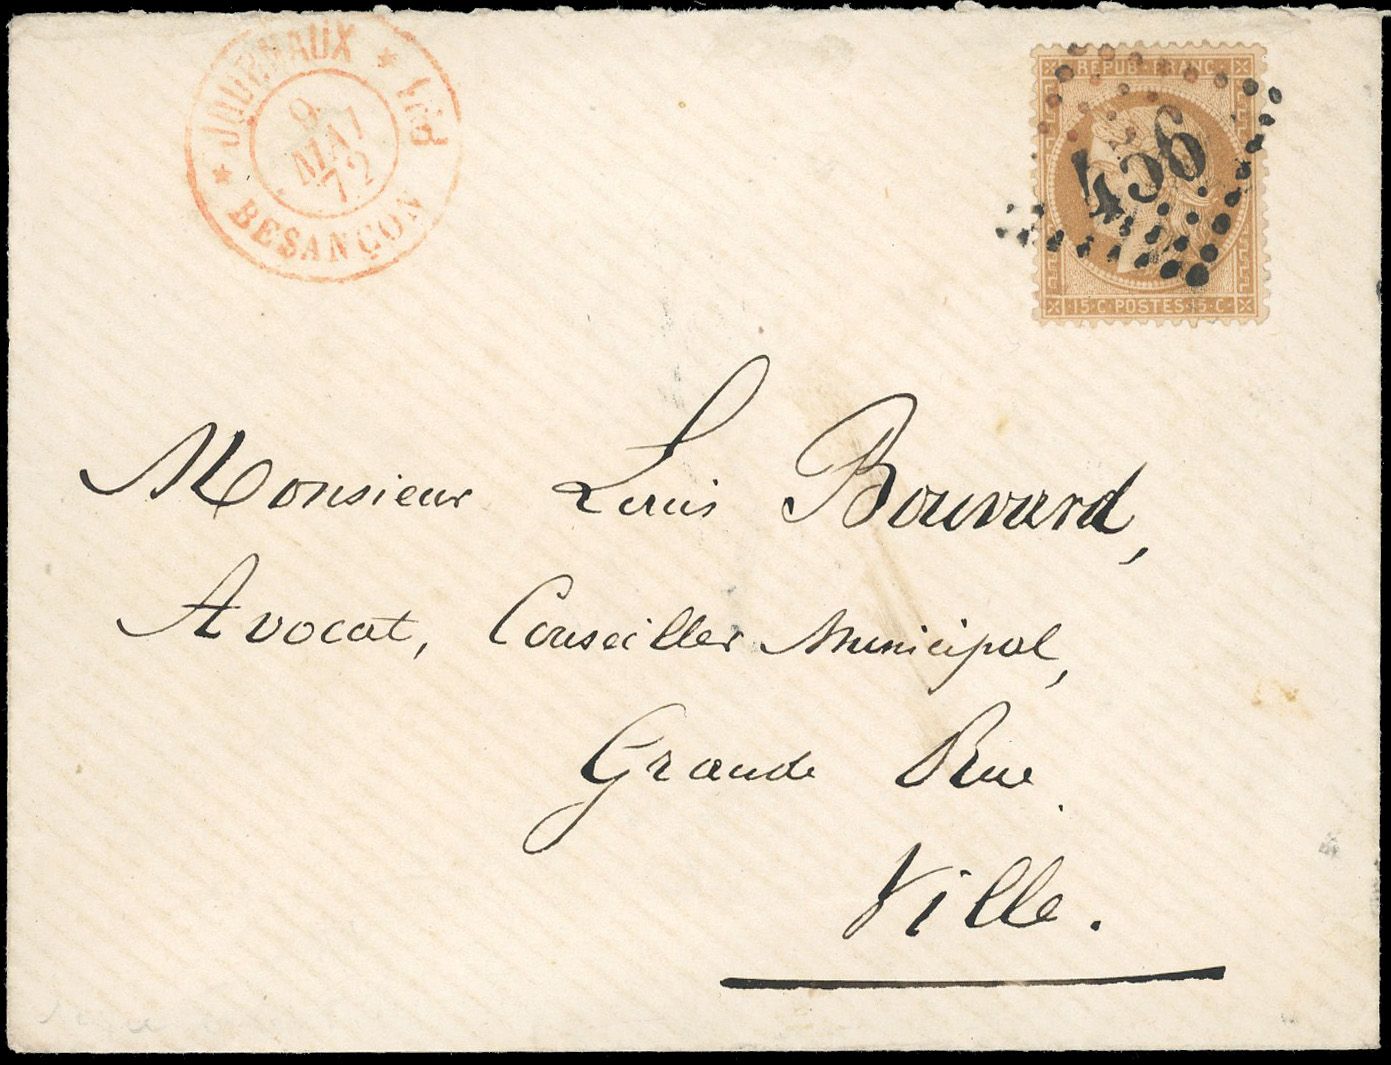 ★ JOURNAUX ★ PP
BESANÇON
9
MAI
72
REPUB · FRANC ·
456
15 · C · POSTES · 15 · C ·
Monsieur Louis Bouvard,
Avocat, Conseiller Municipal,
Grande Rue.
Ville.